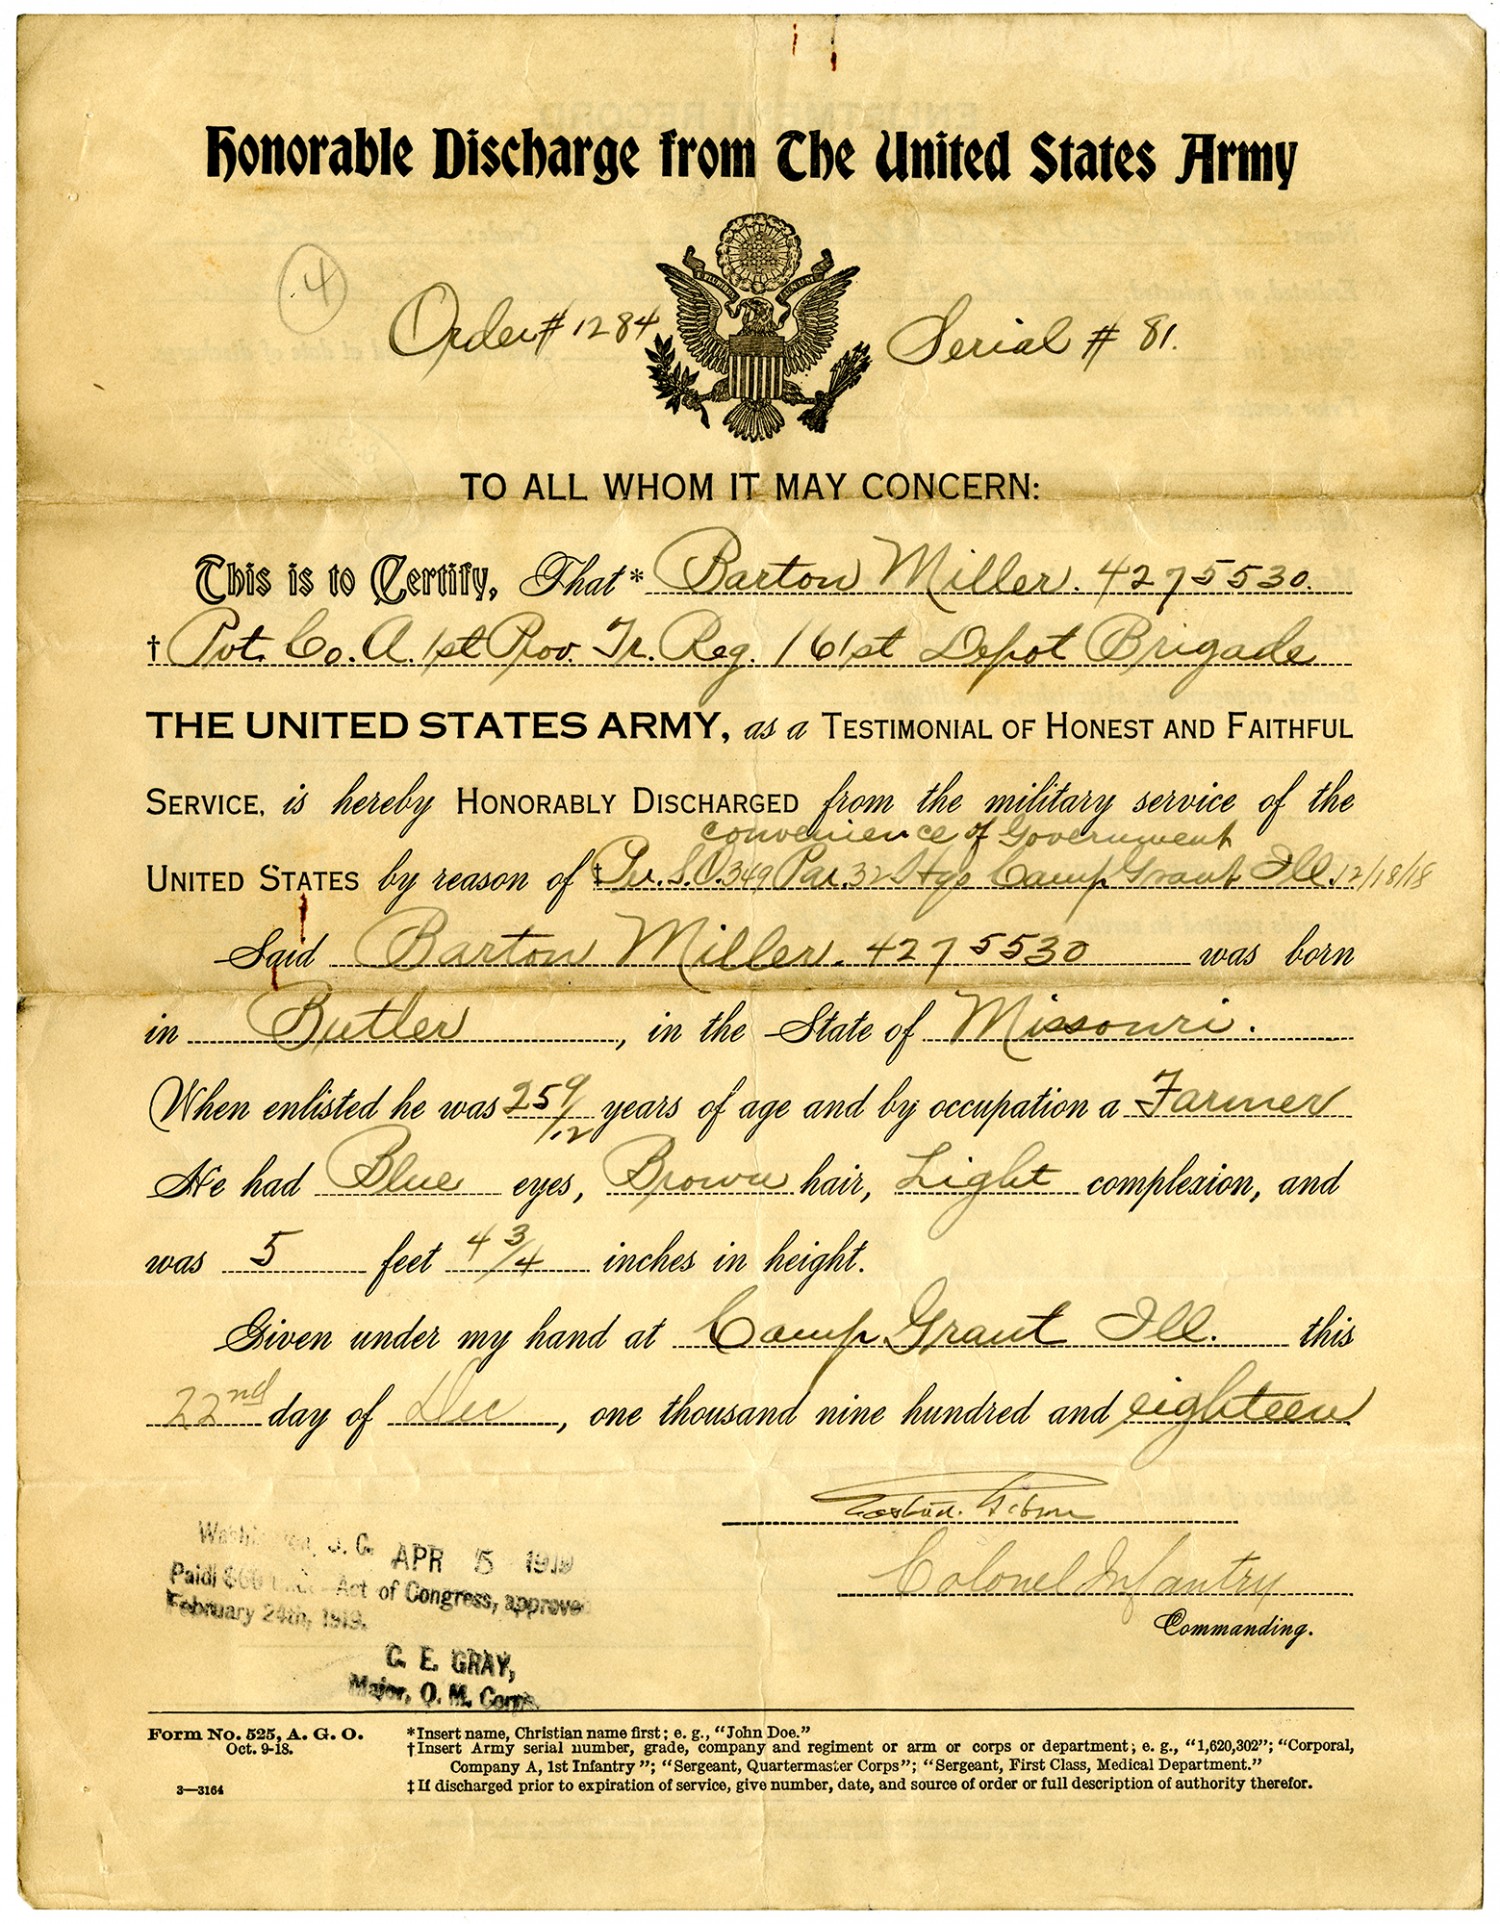 Honorable Discharge from The United States Army
4
Order # 1284
Serial # 81.
TO ALL WHOM IT MAY CONCERN:
This is to Certify, That * Barton Miller. 4275530.
† Pvt. Co. A. 1st Prov. Tr. Reg. 161st Depot Brigade
THE UNITED STATES ARMY, as a TESTIMONIAL OF HONEST AND FAITHFUL
SERVICE, is hereby HONORABLY DISCHARGED from the military service of the
convenience of Government
UNITED STATES by reason of ‡ S.O. 349 Par. 32 Hqs Camp Grant Ill. 12/18/18
Said Barton Miller. 4275530 was born
in Butler, in the State of Missouri.
When enlisted he was 25 9/12 years of age and by occupation a Farmer
He had Blue eyes, Brown hair, Light complexion, and
was 5 feet 4 3/4 inches in height.
Given under my hand at Camp Grant Ill. this
22nd day of Dec, one thousand nine hundred and eighteen
Colonel Infantry
Commanding.
Washington, D. C. APR 5 1919
Paid $60 Act of Congress, approved
February 24th, 1919.
C. E. GRAY,
Major, Q. M. Corps.
Form No. 525, A. G. O.
Oct. 9-18.
3—3164
*Insert name, Christian name first; e. g., "John Doe."
†Insert Army serial number, grade, company and regiment or arm or corps or department; e. g., "1,620,302"; "Corporal,
Company A, 1st Infantry"; "Sergeant, Quartermaster Corps"; "Sergeant, First Class, Medical Department."
‡If discharged prior to expiration of service, give number, date, and source of order or full description of authority therefor.